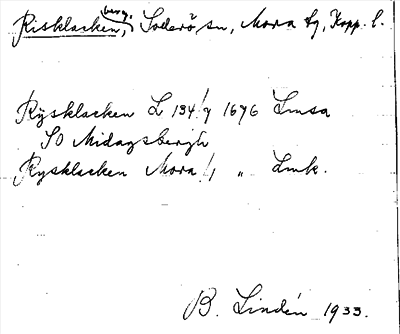 Risklacken, berg, Sollerö sn, Mora tg, Kopp. l.
Rÿsklacken L 134/9 1676 Lmsa
SO Midagsbergh
Rysklacken Mora 1/1 " Lmk.
B. Lindén 1933.